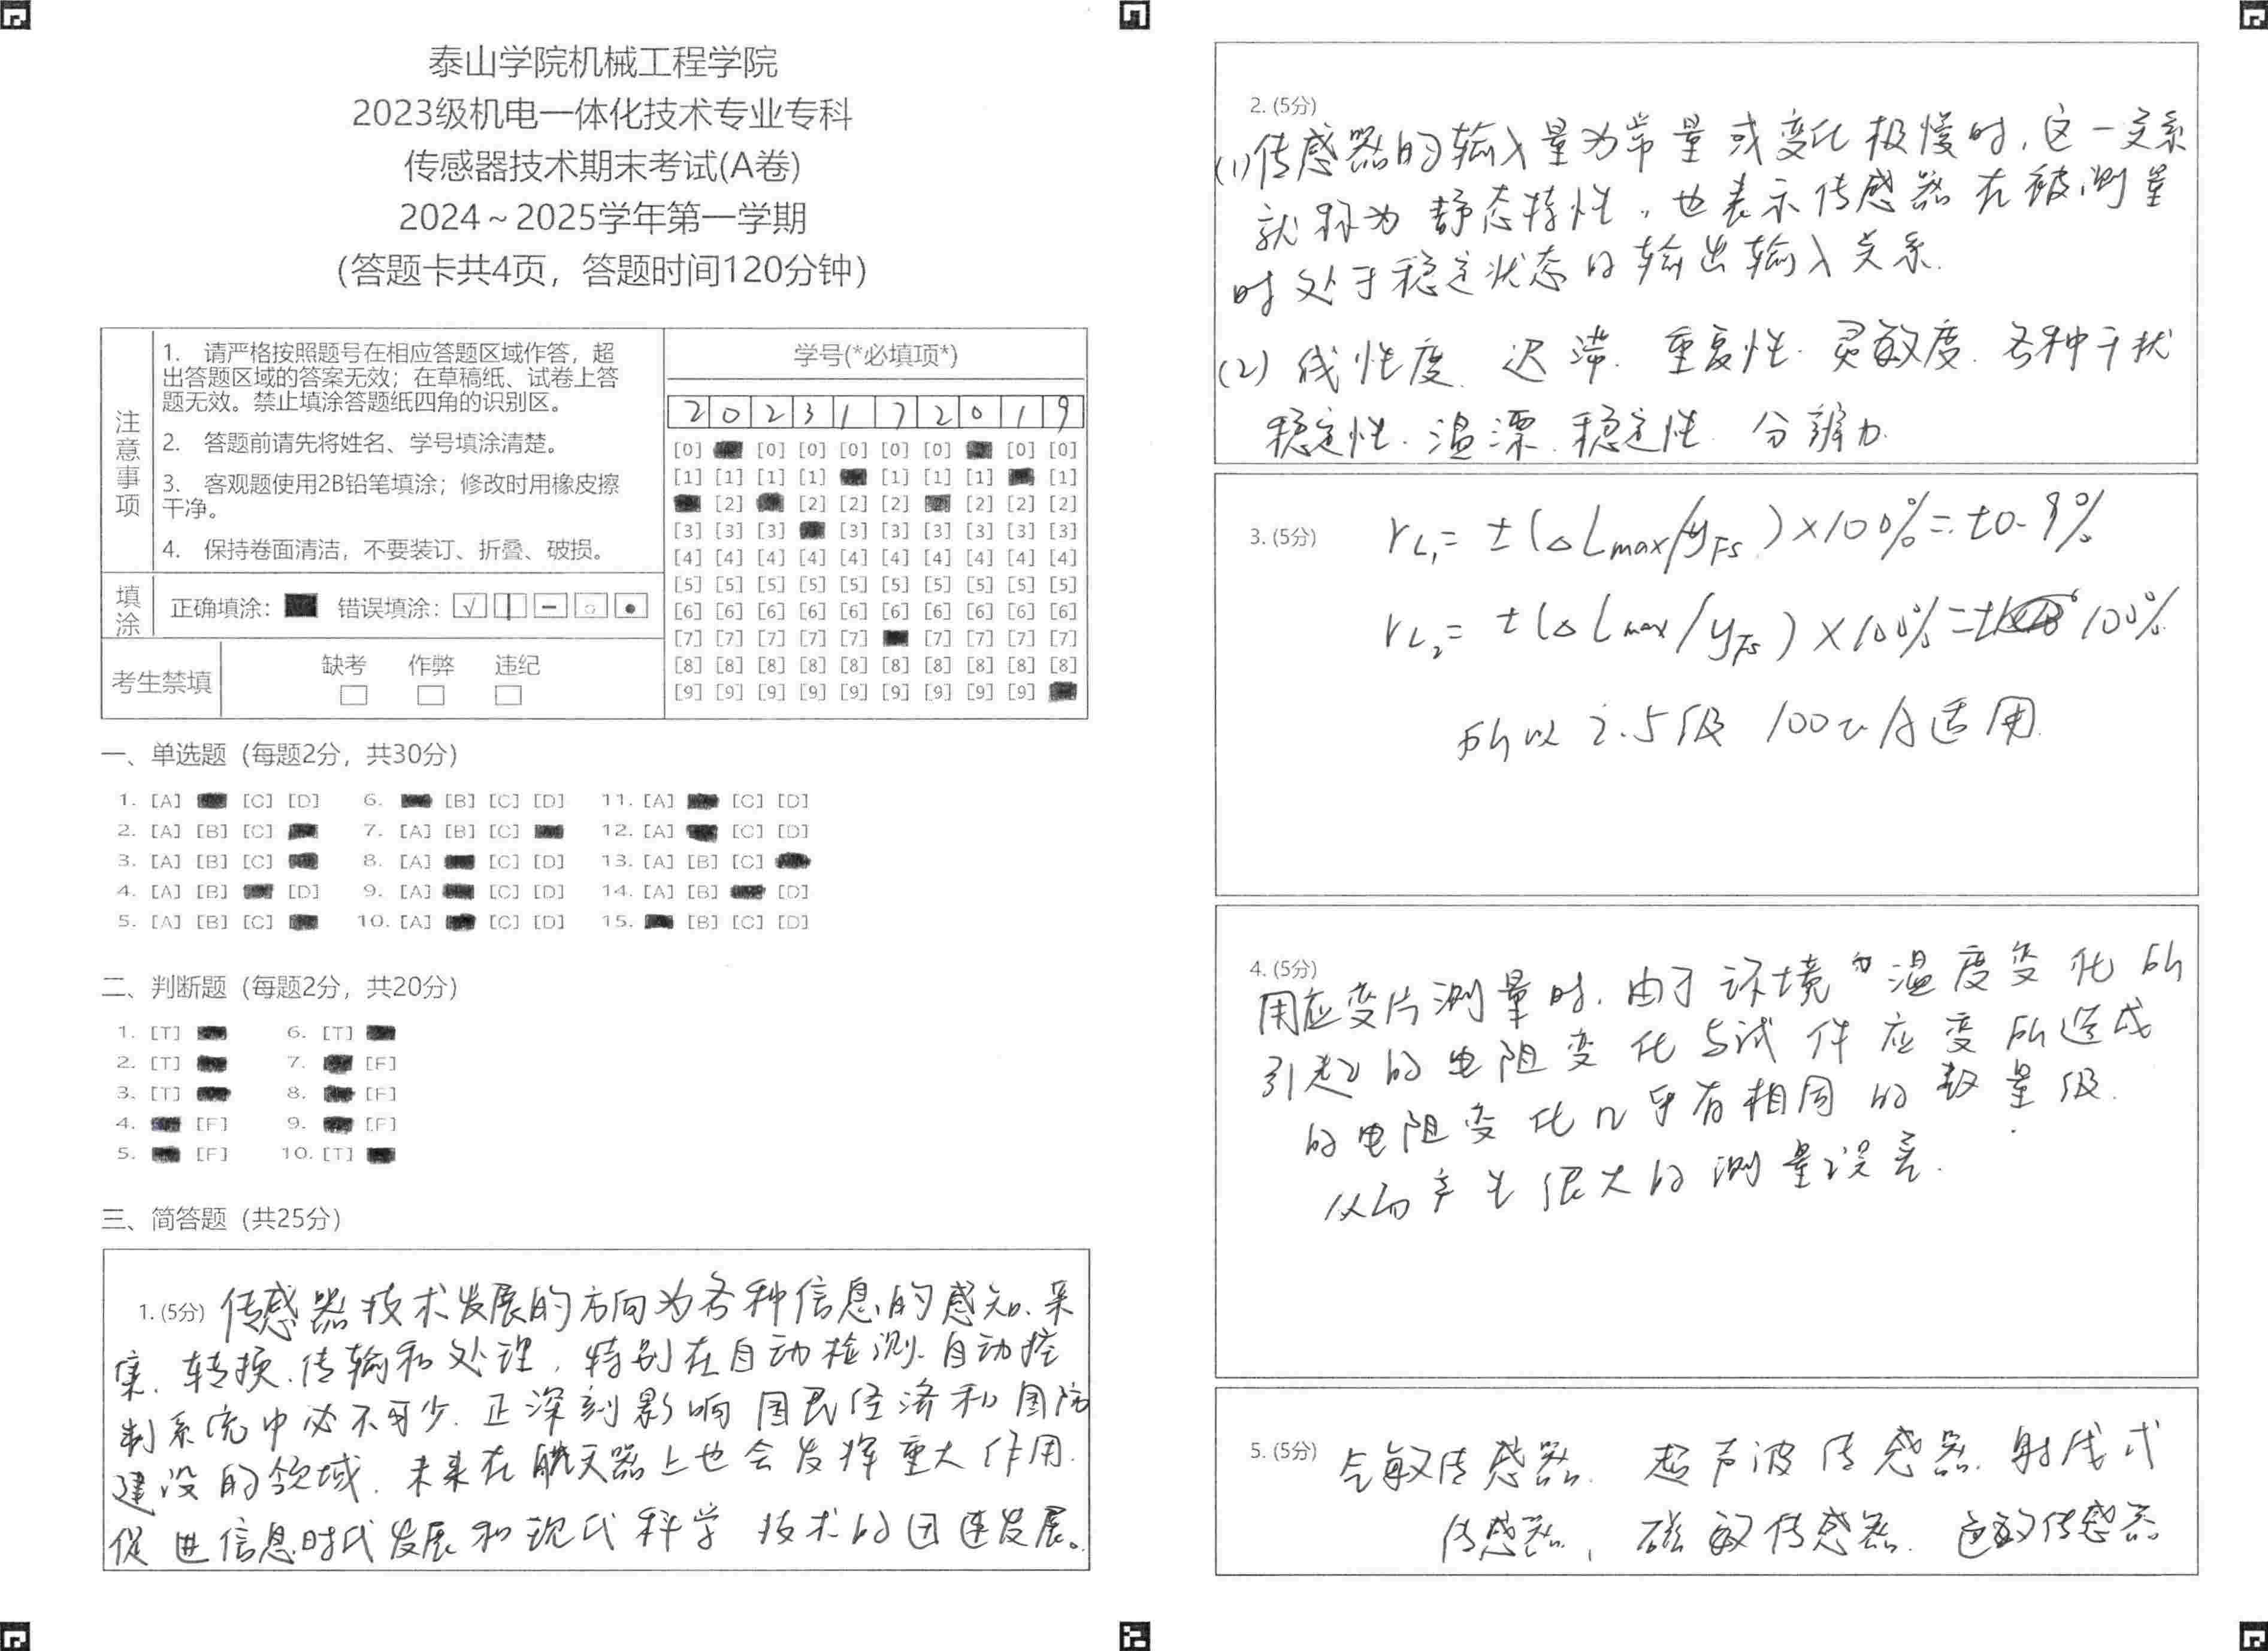 泰山学院机械工程学院
2023级机电一体化技术专业专科
传感器技术期末考试(A卷)
2024～2025学年第一学期
(答题卡共4页，答题时间120分钟)
注意事项
1. 请严格按照题号在相应答题区域作答，超
出答题区域的答案无效；在草稿纸、试卷上答
题无效。禁止填涂答题纸四角的识别区。
2. 答题前请先将姓名、学号填涂清楚。
3. 客观题使用2B铅笔填涂；修改时用橡皮擦
干净。
4. 保持卷面清洁，不要装订、折叠、破损。
填涂
正确填涂： 错误填涂：
考生禁填
缺考 作弊 违纪
学号(*必填项*)
2 0 2 3 1 7 2 0 1 9
[0] [0] [0] [0] [0] [0] [0] [0]
[1] [1] [1] [1] [1] [1] [1] [1]
[2] [2] [2] [2] [2] [2] [2]
[3] [3] [3] [3] [3] [3] [3] [3] [3]
[4] [4] [4] [4] [4] [4] [4] [4] [4] [4]
[5] [5] [5] [5] [5] [5] [5] [5] [5] [5]
[6] [6] [6] [6] [6] [6] [6] [6] [6] [6]
[7] [7] [7] [7] [7] [7] [7] [7] [7]
[8] [8] [8] [8] [8] [8] [8] [8] [8] [8]
[9] [9] [9] [9] [9] [9] [9] [9] [9]
一、单选题 (每题2分，共30分)
1. [A] [C] [D] 6. [B] [C] [D] 11. [A] [C] [D]
2. [A] [B] [C] 7. [A] [B] [C] 12. [A] [C] [D]
3. [A] [B] [C] 8. [A] [C] [D] 13. [A] [B] [C]
4. [A] [B] [D] 9. [A] [C] [D] 14. [A] [B] [D]
5. [A] [B] [C] 10. [A] [C] [D] 15. [B] [C] [D]
二、判断题 (每题2分，共20分)
1. [T] 6. [T]
2. [T] 7. [F]
3. [T] 8. [F]
4. [F] 9. [F]
5. [F] 10. [T]
三、简答题 (共25分)
1. (5分) 传感器技术发展的方向为各种信息的感知、采
集、转换、传输和处理，特别在自动检测、自动控
制系统中必不可少. 正深刻影响国民经济和国防
建设的领域. 未来在航天器上也会发挥重大作用.
促进信息时代发展和现代科学技术的迅速发展。
2. (5分)
(1)传感器的输入量为常量或变化极慢时, 这一关系
就称为静态特性, 也表示传感器在被测量
时处于稳定状态的输出输入关系.
(2) 线性度. 迟滞. 重复性. 灵敏度. 各种干扰
稳定性. 温漂. 稳定性. 分辨力.
3. (5分) rL₁= ±(△Lmax/yFS)×100%=±0.9%
rL₂= ±(△Lmax/yFS)×100%=± 100%
所以 2.5级 100 适用.
4. (5分)
用应变片测量时. 由于环境的温度变化所
引起的电阻变化与试件应变所造成
的电阻变化几乎有相同的数量级.
从而产生很大的测量误差.
5. (5分) 气敏传感器. 超声波传感器. 射线式
传感器, 磁敏传感器. 色敏传感器